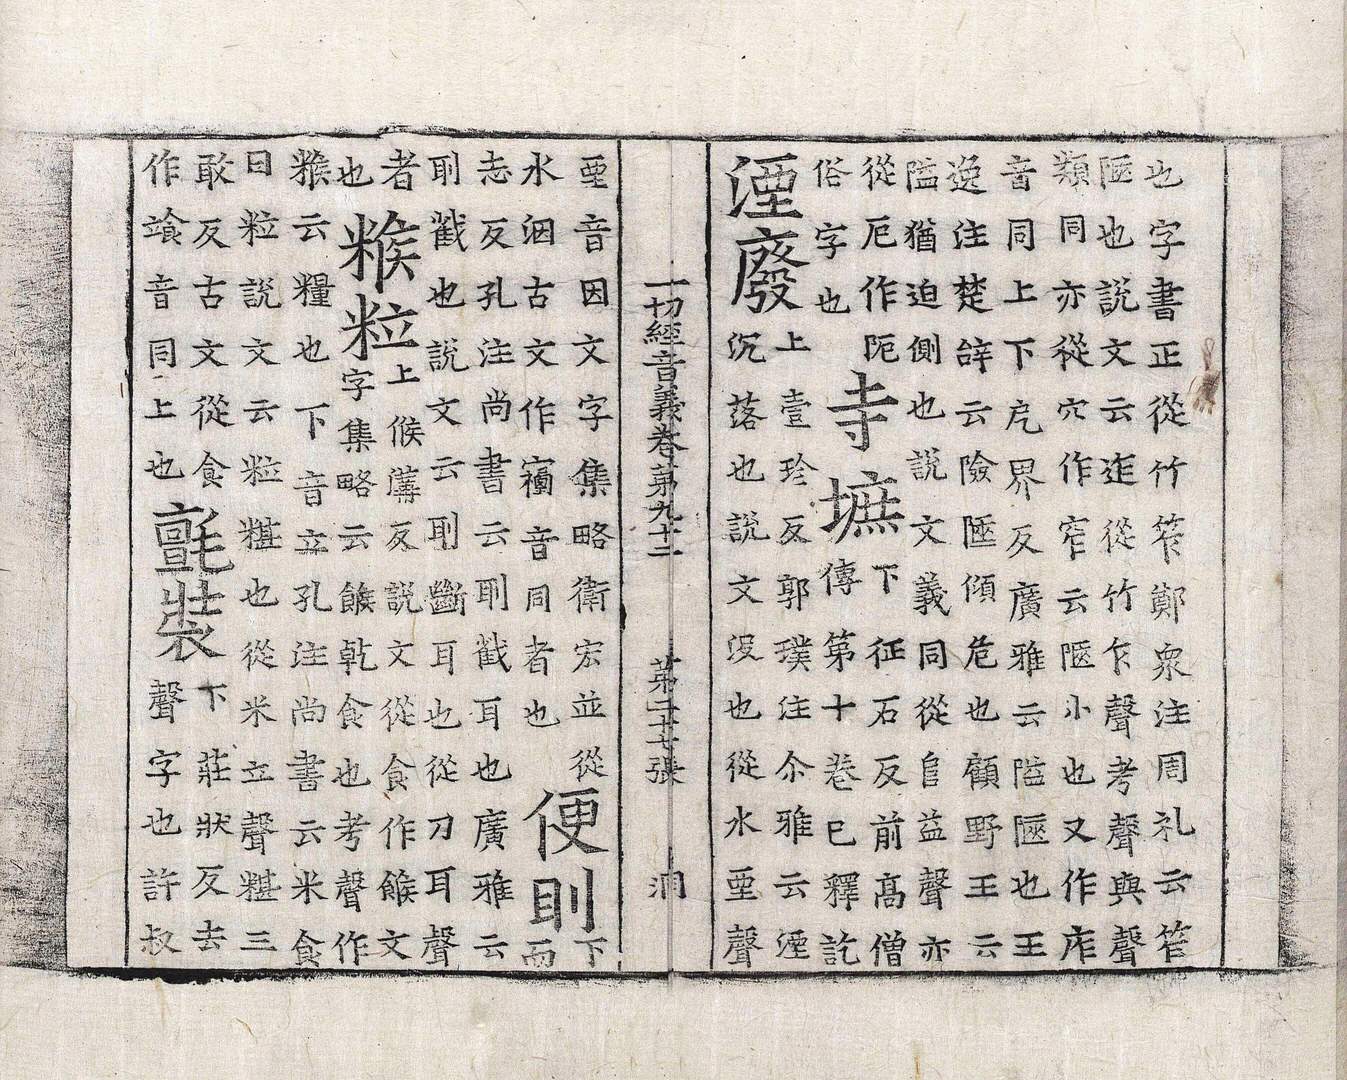 也字書正從竹笮鄭衆注周礼云笮
陿也說文云迮從竹乍聲考聲與聲
類同亦從穴作窄云陿小也又作㡸
音同上下戹界反廣雅云隘陿也王
逸注楚辝云險陿傾危也顧野王云
隘猶迫側也說文義同從𨸏益聲亦
從厄作阨
寺墌下征石反前髙僧
俗字也
傳第十卷已釋訖
湮廢上壹珍反郭璞注尒雅云湮
沉落也說文沒也從水垔聲
垔音因文字集略衛宏並從
水洇古文作𡪢音同者也
便刵下而
志反孔注尚書云刵截耳也廣雅云
刵截也說文云刵斷耳也從刀耳聲
者
糇粒上候溝反說文從食作餱文
也
字集略云餱乾食也考聲作
糇云糧也下音立孔注尚書云米食
曰粒說文云粒糂也從米立聲糂三
敢反古文從食
作䭕音同上也
氈裝下莊狀反去
聲字也許叔
一切經音義卷第九十二 第二十七張 洞